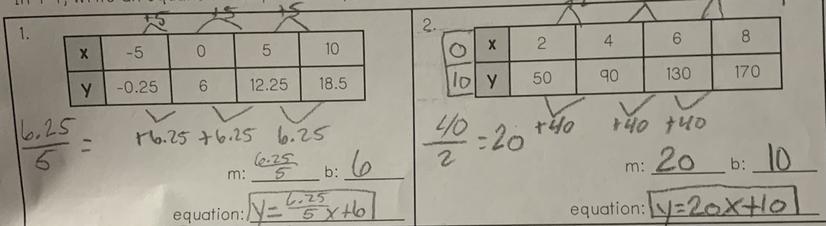 +5 +5 +5
1.
x -5 0 5 10
y -0.25 6 12.25 18.5
+6.25 +6.25 6.25
6.25/5 =
m: 6.25/5 b: 6
equation: y=6.25/5x+6
2.
0 x 2 4 6 8
10 y 50 90 130 170
+40 +40 +40
40/2 =20
m: 20 b: 10
equation: y=20x+10